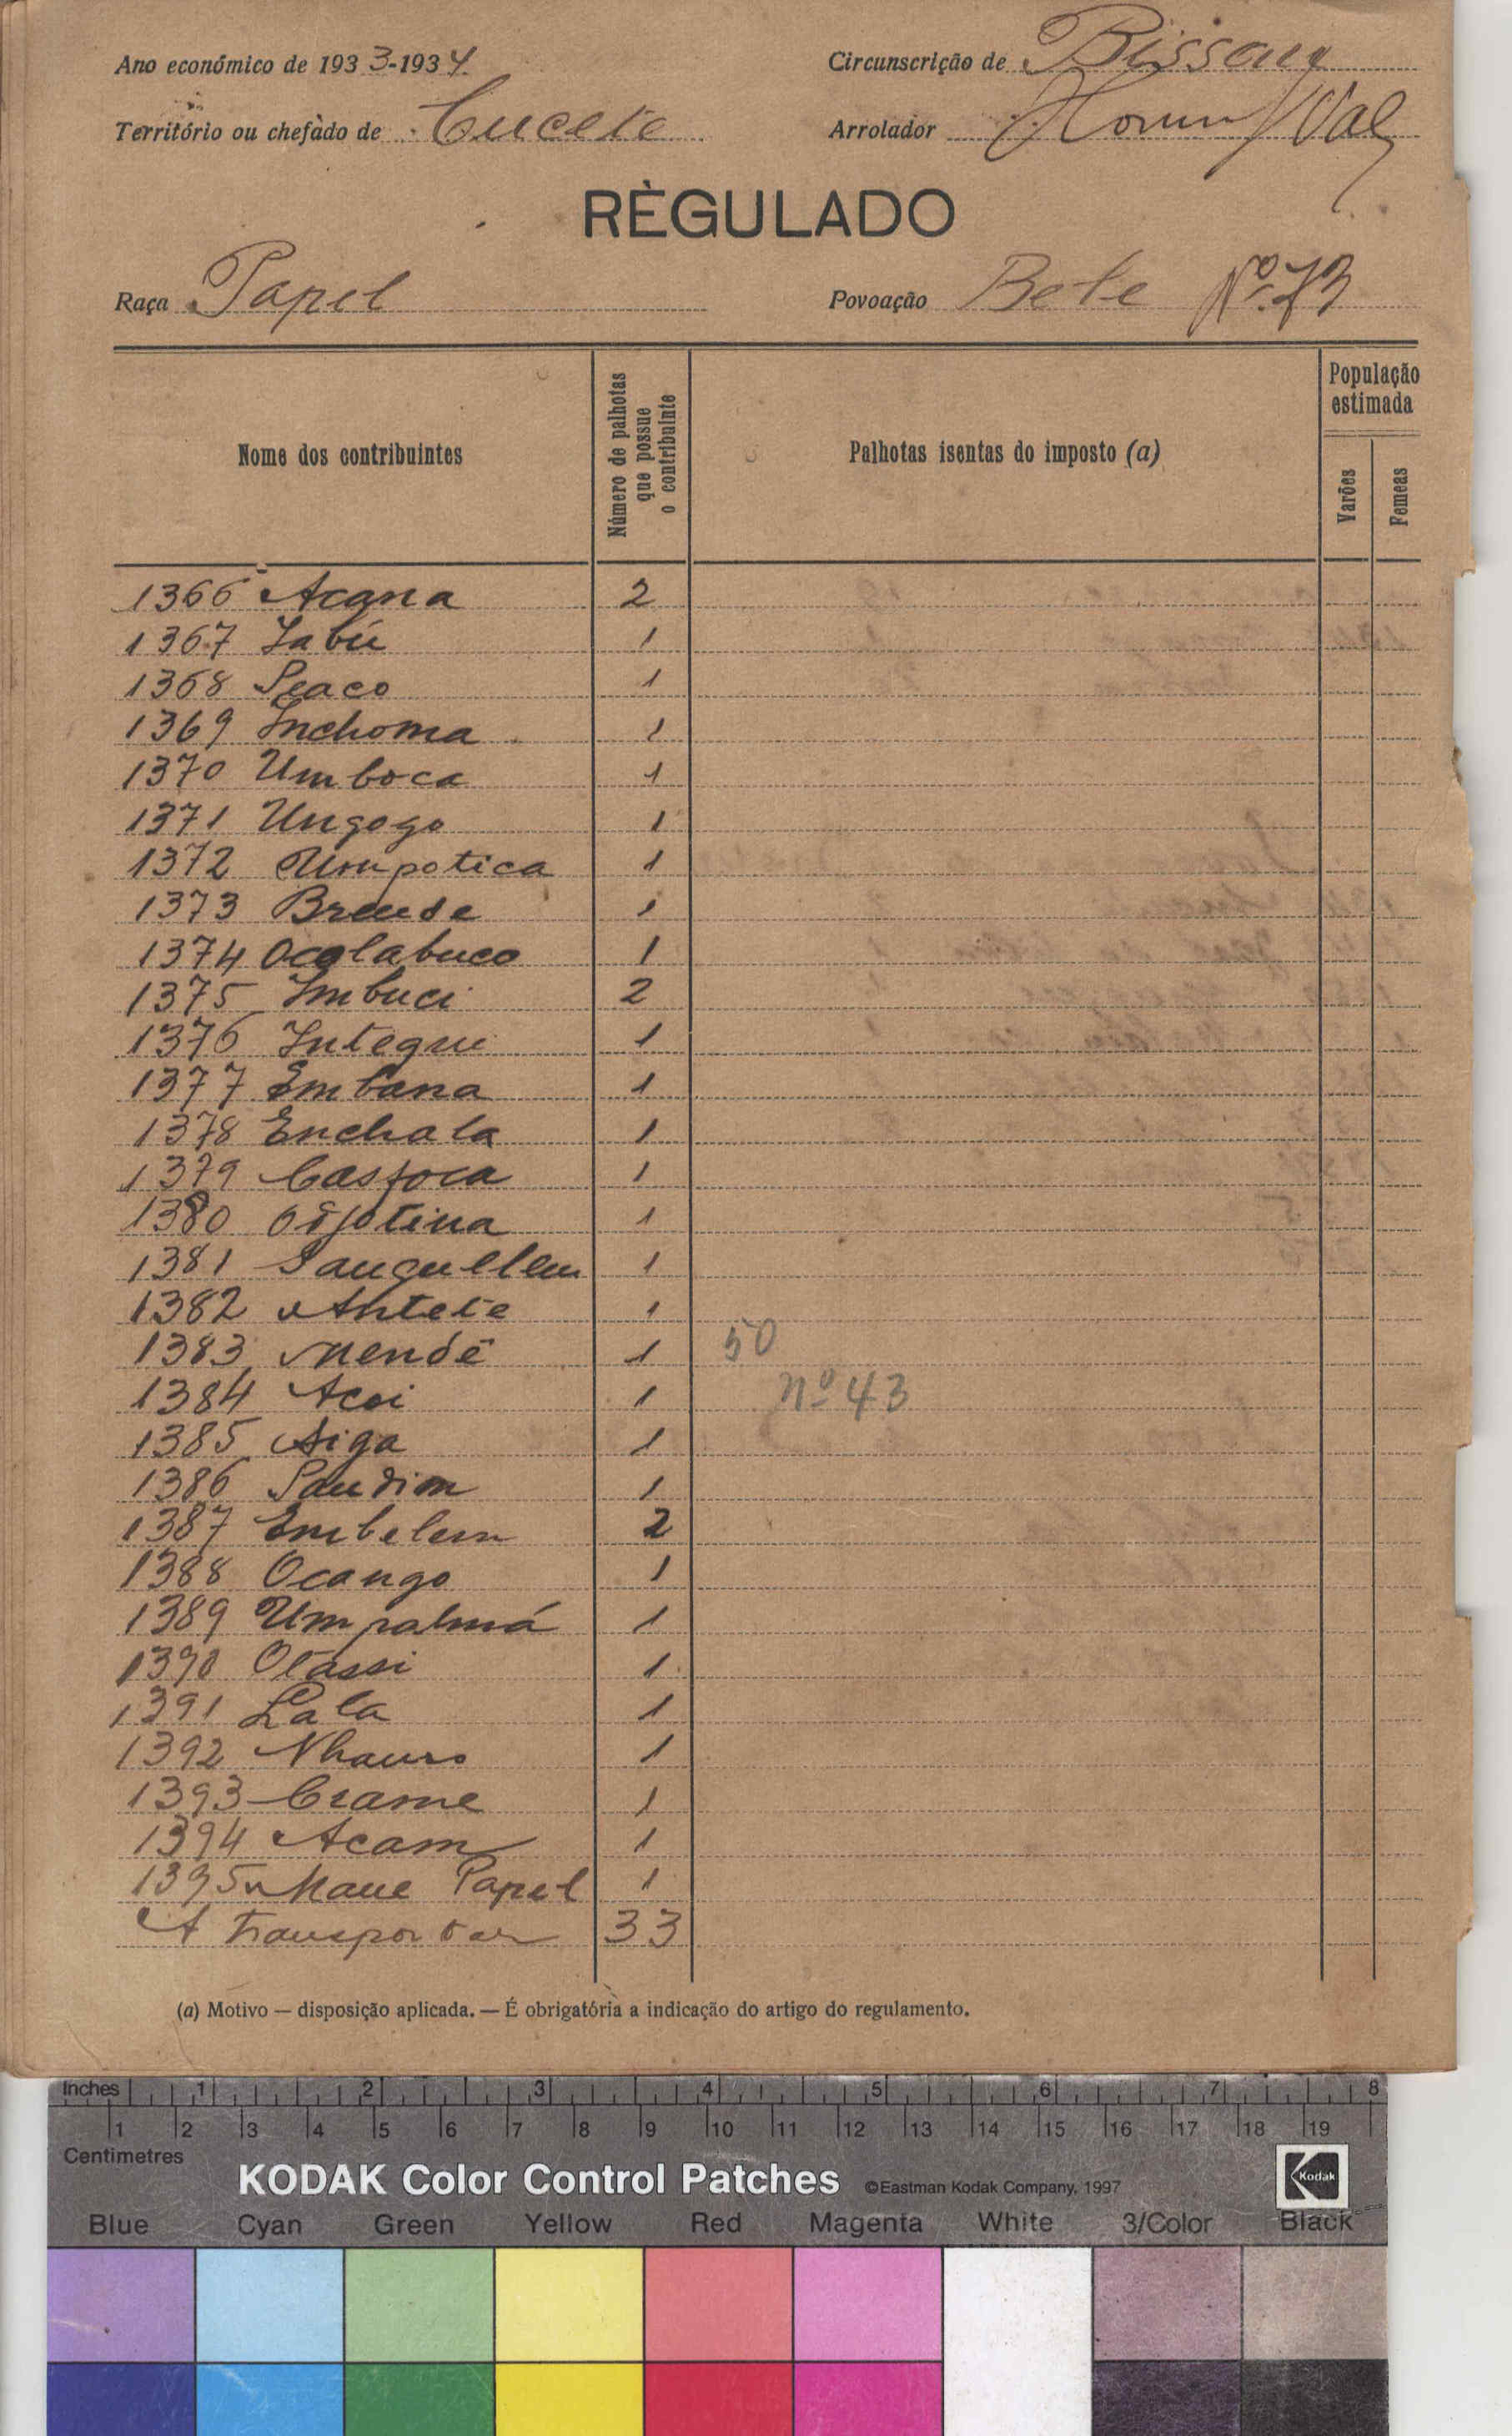 Ano económico de 1933-1934
Circunscrição de Bissau
Território ou chefado de Cucete
Arrolador
RÈGULADO
Raça Papel
Povoação Bete Nº 73
Nome dos contribuintes
Número de palhotas que possue o contribuinte
Palhotas isentas do imposto (a)
População estimada
Varões
Femeas
1366 Acana 2
1367 Jabú 1
1368 Seaco 1
1369 Inchoma 1
1370 Umboca 1
1371 Ungogo 1
1372 Umpotica 1
1373 1
1374 Ocolabuco 1
1375 Imbuci 2
1376 Integui 1
1377 Embana 1
1378 Enchala 1
1379 Casfoca 1
1380 1
1381 1
1382 Antete 1
1383 Mendê 1 50
1384 Acoi 1 nº 43
1385 Aiga 1
1386 Saudim 1
1387 Embelem 2
1388 Ocango 1
1389 Umpalmá 1
1390 Otassi 1
1391 Lala 1
1392 1
1393 Crame 1
1394 Acam 1
1395 Papel 1
A Transportar 33
(a) Motivo — disposição aplicada. — É obrigatória a indicação do artigo do regulamento.
Inches 1 2 3 4 5 6 7 8
1 2 3 4 5 6 7 8 9 10 11 12 13 14 15 16 17 18 19
Centimetres
KODAK Color Control Patches ©Eastman Kodak Company, 1997 Kodak
Blue Cyan Green Yellow Red Magenta White 3/Color Black